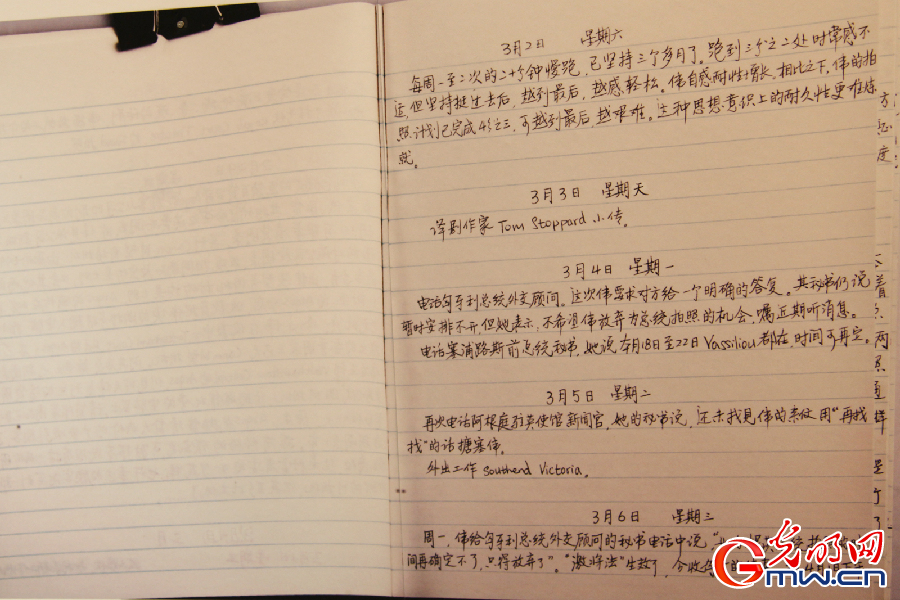 3月2日 星期六
每周一至二次的二十分钟慢跑，已坚持三个多月了。跑到三分之二处时常感不
适，但坚持挺过去后，越到最后，越感轻松。伟自感耐性增长。相比之下，伟的拍
照计划已完成4分之三，可越到最后，越艰难。这种思想意识上的耐久性更难炼
就。
3月3日 星期天
译剧作家 Tom Stoppard 小传。
3月4日 星期一
电话匈牙利总统外交顾问。这次伟要求对方给一个明确的答复。其秘书仍说
暂时安排不开，但她表示，不希望伟放弃为总统拍照的机会，嘱近期听消息。
电话塞浦路斯前总统秘书，她说本月18日至22日 Vassiliou 都在，时间可再定。
3月5日 星期二
再次电话阿根庭驻英使馆新闻官。她的秘书说，还未找见伟的来仪 用“再找
找”的话搪塞伟。
外出工作 Southend Victoria。
3月6日 星期三
周一，伟给匈牙利总统外交顾问的秘书电话中说，“
间再确定不了，只得放弃了”。“激将法”生效了，今收
光明网
GMW.cn